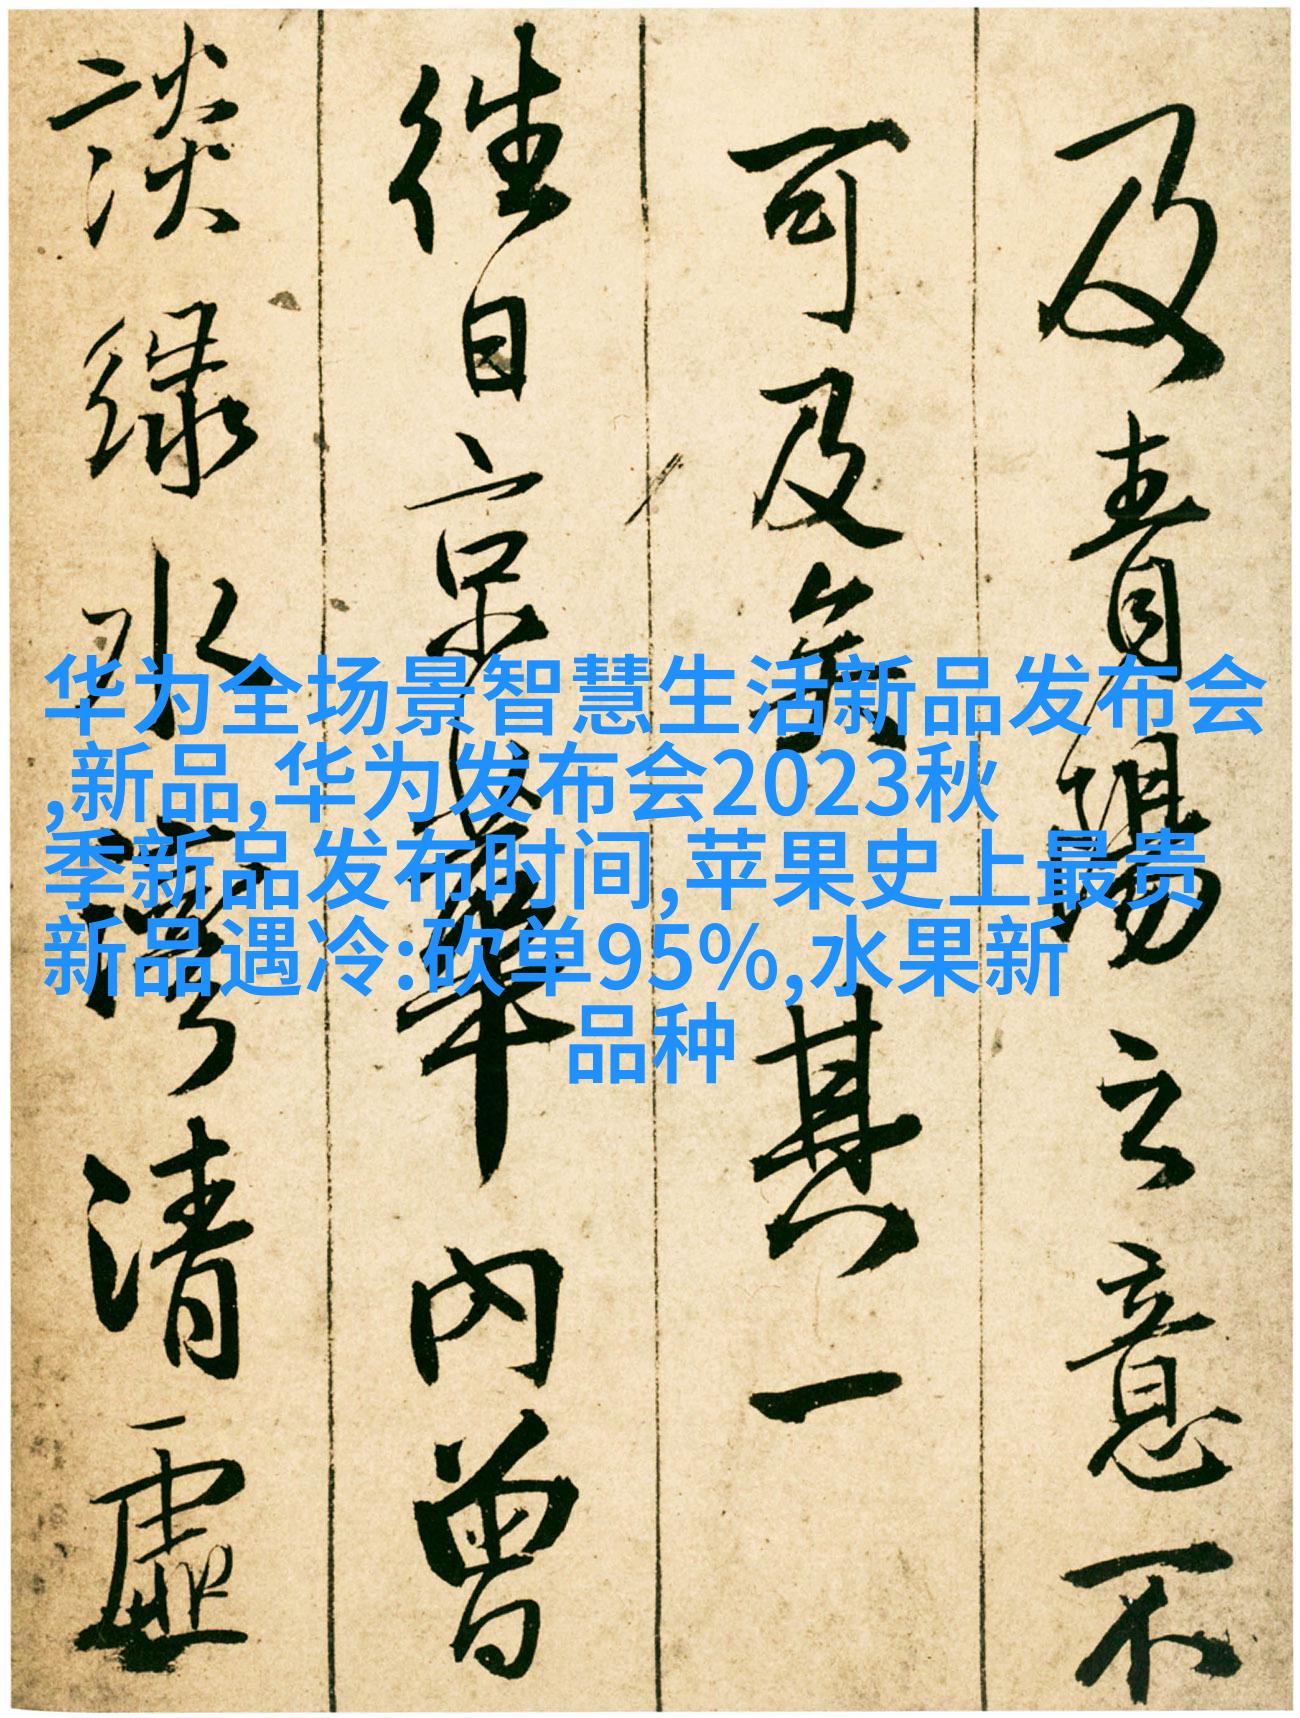 及青陽之意不
可及矣 其一
往日京華內曾
談綠水灣清虛
华为全场景智慧生活新品发布会
,新品,华为发布会2023秋
季新品发布时间,苹果史上最贵
新品遇冷:砍单95%,水果新
品种